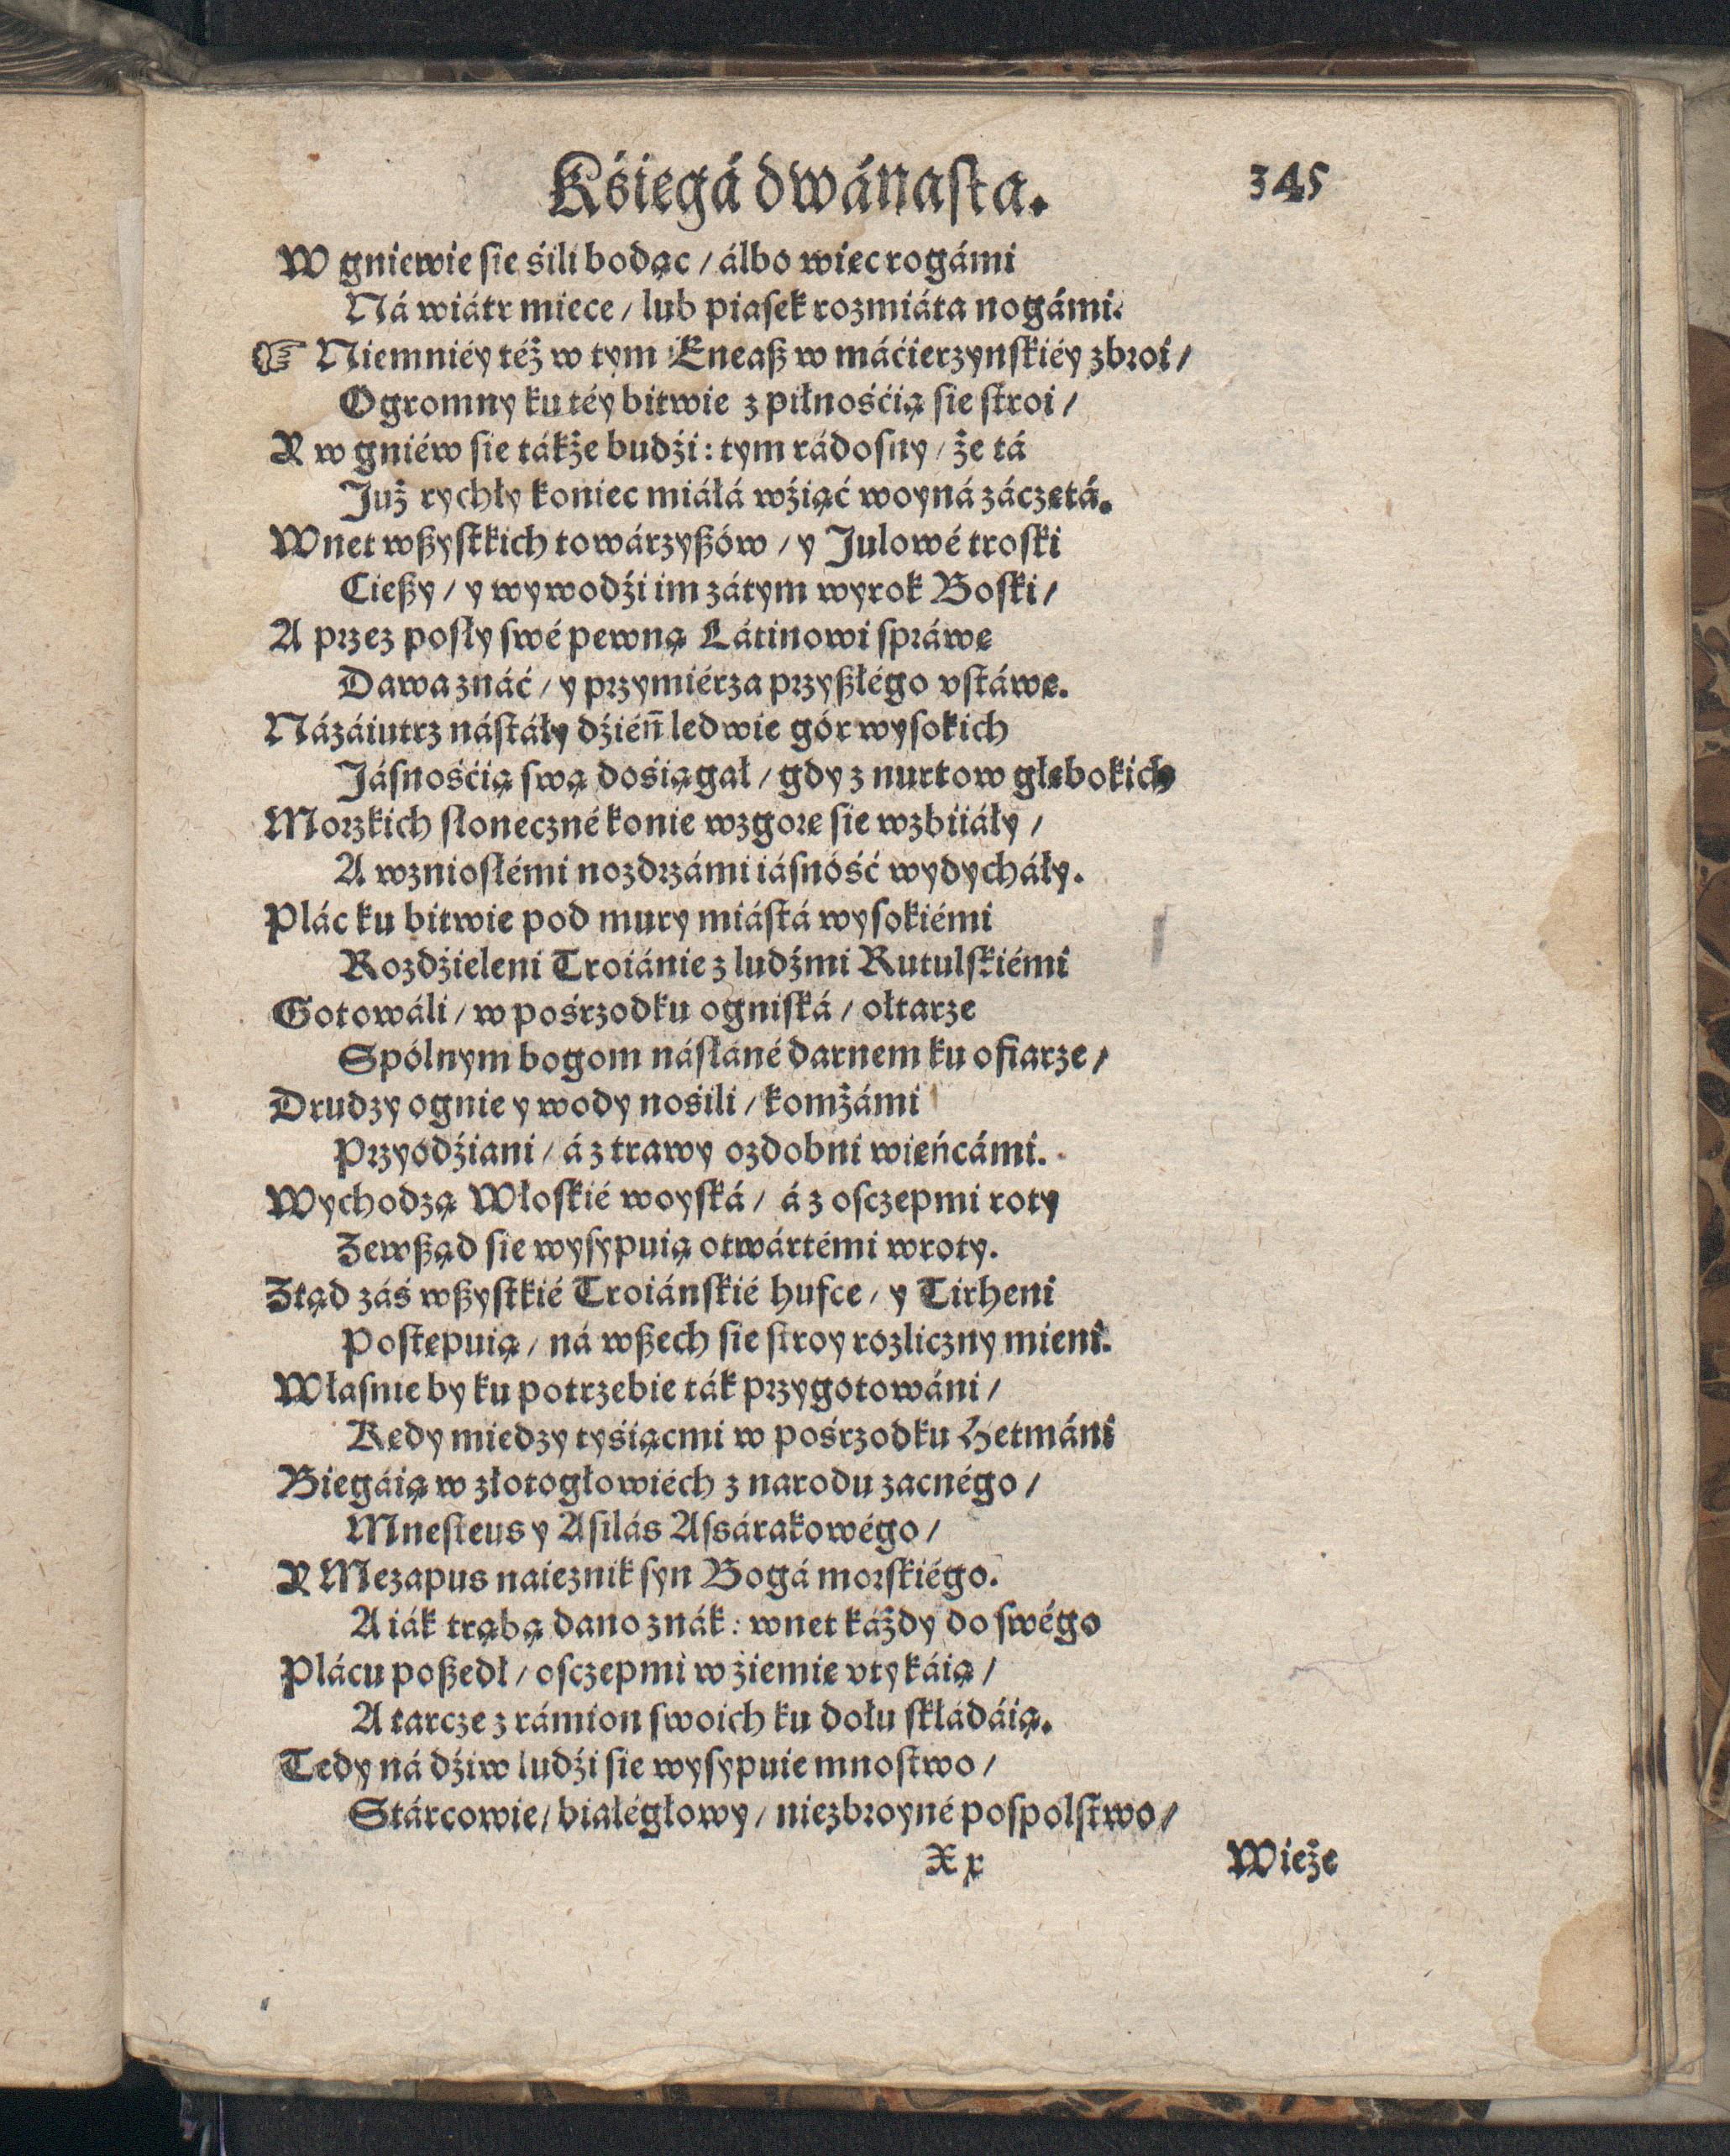 Kśięgá dwánasta. 345
W gniewie ſie śili bodąc / álbo więc rogámi
Ná wiátr miece / lub piaſek rozmiáta nogámi.
☞ Niemniéy téż w tym Eneaß w máćierzynſkiéy zbroi /
Ogromny ku téy bitwie z piłnośćią ſie ſtroi /
Y w gniéw ſie tákże budźi: tym rádoſny / że tá
Już rychły koniec miáłá wźiąć woyná záczętá.
Wnet wßyſtkich towárzyßów / y Julowé troſki
Cießy / y wywodźi im zátym wyrok Boſki /
A przez poſły ſwé pewną Látinowi ſpráwę
Dawa znáć / y przymiérza przyßłégo vſtáwę.
Názáiutrz náſtáły dźień ledwie gór wyſokich
Jáſnośćią ſwą dośiągał / gdy z nurtow głębokich
Morzkich ſłoneczné konie wzgorę ſie wzbiiáły /
A wznioſłémi nozdrzámi iáſnóść wydycháły.
Plác ku bitwie pod mury miáſtá wyſokiémi
Rozdźieleni Troiánie z ludźmi Rutulſkiémi
Gotowáli / w pośrzodku ogniſká / ołtarze
Spólnym bogom náſłáné darnem ku ofiarze /
Drudzy ognie y wody nośili / komżámi
Przyodźiani / á z trawy ozdobni wieńcámi.
Wychodzą Włoſkié woyſká / á z oſczepmi roty
Zewßąd ſie wyſypuią otwártémi wroty.
Ztąd záś wßyſtkié Troiánſkié hufce / y Tirheni
Poſtępuią / ná wßech ſie ſtroy rozliczny mieni.
Właſnie by ku potrzebie ták przygotowáni /
Kędy miedzy tyśiącmi w pośrzodku Hetmáni
Biegáią w złotogłowiéch z narodu zacnégo /
Mneſteus y Aſilás Aſsárakowégo /
Y Mezapus naieznik ſyn Bogá morſkiégo.
A iák trąbą dano znák: wnet káżdy do ſwégo
Plácu poßedł / oſczepmi w źiemię vtykáią /
A tarcze z rámion ſwoich ku dołu ſkłádáią.
Tedy ná dźiw ludźi ſie wyſypuie mnoſtwo /
Stárcowie / białégłowy / niezbroyné poſpolſtwo /
Xx Wieże